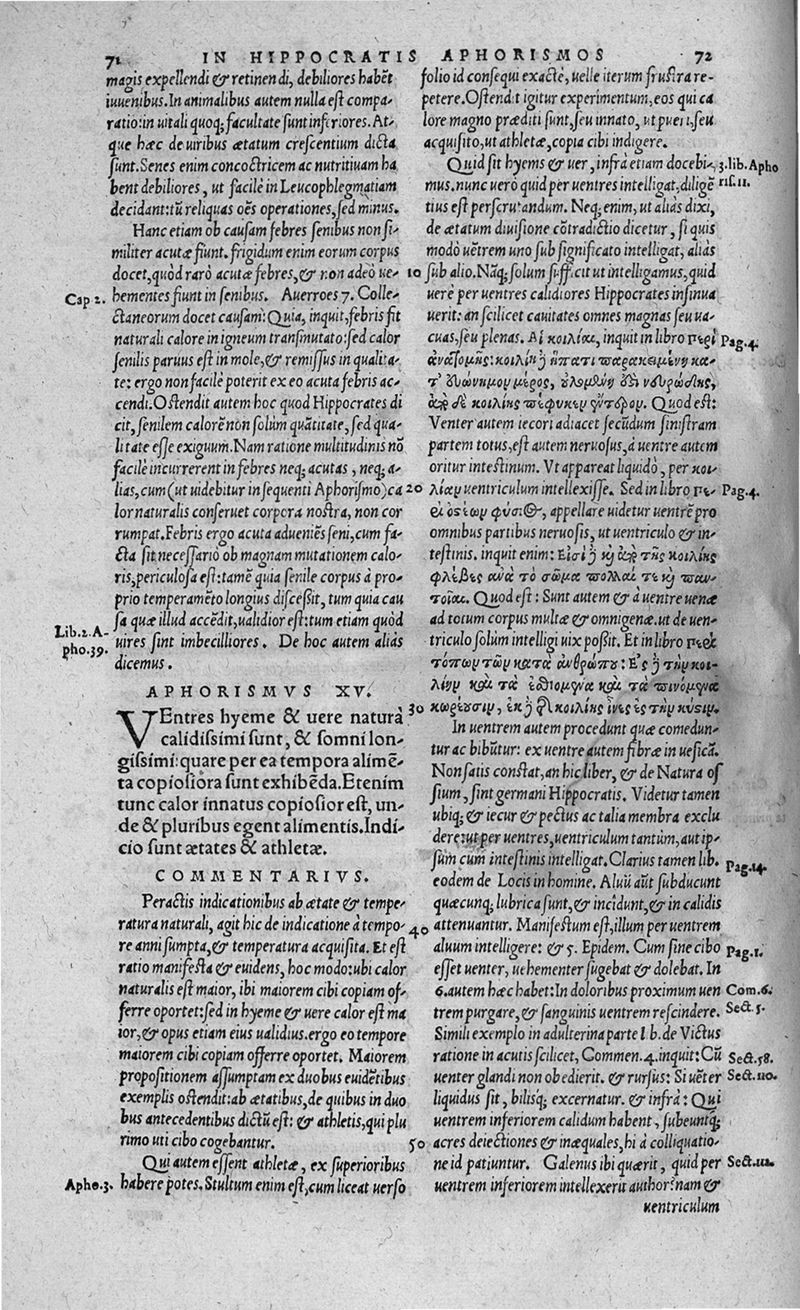 71 IN HIPPOCRATIS APHORISMOS 72
magis expellendi & retinendi, debiliores habēt
iuuenibus. In animalibus autem nulla est compa-
ratio: in uitali quoq; facultate sunt inferiores. At-
que hæc de uiribus ætatum crescentium dicta
sunt. Senes enim concoctricem ac nutritiuam ha
bent debiliores, ut facilè in Leucophlegmatiam
decidant: tū reliquas oēs operationes, sed minus.
Hanc etiam ob causam febres senibus non si-
militer acutæ fiunt. frigidum enim eorum corpus
docet, quòd rarò acutæ febres, & non adeò ue-
Cap 2. hementes fiunt in senibus. Auerroes 7. Colle-
ctaneorum docet causam: Quia, inquit, febris fit
naturali calore in igneum transmutato: sed calor
senilis paruus est in mole, & remissus in qualita-
te: ergo non facilè poterit ex eo acuta febris ac-
cendi. Ostendit autem hoc quod Hippocrates di
cit, senilem calorē non solùm quātitate, sed qua-
litate esse exiguum. Nam ratione multitudinis nō
facilè incurrerent in febres neq; acutas, neq; a-
lias, cum (ut uidebitur in sequenti Aphorismo) ca
lor naturalis conseruet corpora nostra, non cor
rumpat. Febris ergo acuta adueniēs seni, cum fa-
cta sit necessariò ob magnam mutationem calo-
ris, periculosa est: tamē quia senile corpus à pro-
prio temperamēto longius discessit, tum quia cau
sa quæ illud accēdit, ualidior est: tum etiam quòd
Lib. 2. A-
pho. 39. uires sint imbecilliores. De hoc autem aliàs
dicemus.
APHORISMVS XV.
VEntres hyeme & uere naturà
calidissimi sunt, & somni lon-
gissimi: quare per ea tempora alimē-
ta copiosiora sunt exhibēda. Etenim
tunc calor innatus copiosior est, un-
de & pluribus egent alimentis. Indí-
cio sunt ætates & athletæ.
COMMENTARIVS.
Peractis indicationibus ab ætate & tempe-
ratura naturali, agit hic de indicatione à tempo-
re anni sumpta, & temperatura acquisita. Et est
ratio manifesta & euidens, hoc modo: ubi calor
naturalis est maior, ibi maiorem cibi copiam of-
ferre oportet: sed in hyeme & uere calor est ma
ior, & opus etiam eius ualidius. ergo eo tempore
maiorem cibi copiam offerre oportet. Maiorem
propositionem assumptam ex duobus euidētibus
exemplis ostendit: ab ætatibus, de quibus in duo
bus antecedentibus dictū est: & athletis, qui plu
rimo uti cibo cogebantur.
Qui autem essent athletæ, ex superioribus
Apho. 3. habere potes. Stultum enim est, cum liceat uerso
folio id consequi exactè, uelle iterum frustra re-
petere. Ostendit igitur experimentum, eos qui ca
lore magno præditi sunt, seu innato, ut pueri, seu
acquisito, ut athletæ, copia cibi indigere.
Quid sit hyems & uer, infrà etiam docebi- 3. lib. Apho
mus. nunc uerò quid per uentres intelligat, diligē ris. 11.
tius est perscrutandum. Neq; enim, ut aliàs dixi,
de ætatum diuisione cōtradictio dicetur, si quis
modò uētrem uno sub significato intelligat, aliàs
10 sub alio. Nāq; solum sufficit ut intelligamus, quid
uerè per uentres calidiores Hippocrates insinua
uerit: an scilicet cauitates omnes magnas seu ua-
cuas, seu plenas. Αἱ κοιλίαι, inquit in libro περὶ Pag. 4.
ἀνατομῆς: κοιλίη ἥπατι παρακειμένη κα-
μέρος,
πέφυκεν Quod est:
Venter autem iecori adiacet secūdum sinistram
partem totus, est autem neruosus, à uentre autem
oritur intestinum. Vt appareat liquidò, per κοι-
20 λίαν uentriculum intellexisse. Sed in libro πε- Pag. 4.
ρὶ ὀστέων φύσιος, appellare uidetur uentrē pro
omnibus partibus neruosis, ut uentriculo & in-
testinis. inquit enim: Εἰσὶ τῆς κοιλίης
φλέβες ἀνὰ τὸ σῶμα πολλαί τε παν-
τοῖαι. Quod est: Sunt autem & à uentre uenæ
ad totum corpus multæ & omnigenæ. ut de uen-
triculo solùm intelligi uix possit. Et in libro περὶ
τόπων τῶν κατὰ ἀνθρώπου: Ἐς τὴν κοι-
λίην καὶ τὰ ἐσθιόμενα καὶ τὰ πινόμενα
30 κοιλίης ἶνες ἐς τὴν κύστιν.
In uentrem autem procedunt quæ comedun-
tur ac bibūtur: ex uentre autem fibræ in uesicā.
Non satis constat, an hic liber, & de Natura os
sium, sint germani Hippocratis. Videtur tamen
ubiq; & iecur & pectus ac talia membra exclu
dere: ut per uentres, uentriculum tantùm, aut ip-
sum cum intestinis intelligat. Clarius tamen lib.
eodem de Locis in homine. Aluū aūt subducunt Pag. 14.
quæcunq; lubrica sunt, & incidunt, & in calidis
40 attenuantur. Manifestum est, illum per uentrem
aluum intelligere: & 5. Epidem. Cum sine cibo Pag. 1.
esset uenter, uehementer sugebat & dolebat. In
6. autem hæc habet: In doloribus proximum uen Com. 6.
trem purgare, & sanguinis uentrem rescindere. Sect. 5.
Simili exemplo in adulterina parte lib. de Victus
ratione in acutis scilicet, Commen. 4. inquit: Cū Sect. 58.
uenter glandi non obedierit. & rursus: Si uēter Sect. 110.
liquidus sit, bilisq; excernatur. & infrà: Qui
uentrem inferiorem calidum habent, subeuntq;
50 acres deiectiones & inæquales, hi à colliquatio-
ne id patiuntur. Galenus ibi quærit, quid per Sect. 111.
uentrem inferiorem intellexerit author: nam &
uentriculum